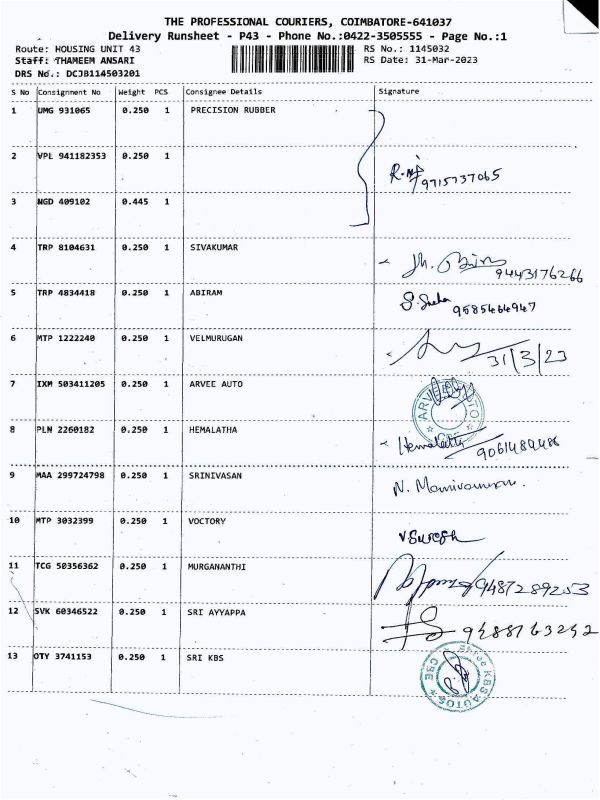 THE PROFESSIONAL COURIERS, COIMBATORE-641037
Delivery Runsheet - P43 - Phone No.:0422-3505555 - Page No.:1
Route: HOUSING UNIT 43
RS No.: 1145032
Staff: THAMEEM ANSARI
RS Date: 31-Mar-2023
DRS No.: DCJB114503201
S No Consignment No Weight PCS Consignee Details Signature
1 UMG 931065 0.250 1 PRECISION RUBBER
2 VPL 941182353 0.250 1
9715737065
3 NGD 409102 0.445 1
4 TRP 8104631 0.250 1 SIVAKUMAR
9443176266
5 TRP 4834418 0.250 1 ABIRAM
S. Sneha 9585464947
6 MTP 1222240 0.250 1 VELMURUGAN
31/3/23
7 IXM 503411205 0.250 1 ARVEE AUTO
ARVEE AUTO
CBE
8 PLN 2260182 0.250 1 HEMALATHA
Hemalatha
9 MAA 299724798 0.250 1 SRINIVASAN
10 MTP 3032399 0.250 1 VOCTORY
V Suresh
11 TCG 50356362 0.250 1 MURGANANTHI
9487289203
12 SVK 60346522 0.250 1 SRI AYYAPPA
13 OTY 3741153 0.250 1 SRI KBS
Shree KBS AUTOS
CBE